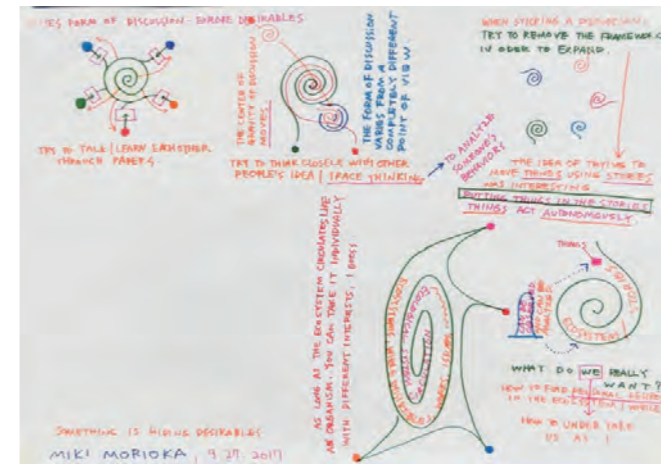 FORM OF DISCUSSION
DESIRABLES
TRY TO TALK | LEARN EACH OTHER
THROUGH PAPERS
THE CENTER OF
GRAVITY OF DISCUSSION
MOVES
THE FORM OF DISCUSSION
VARIES FROM A
COMPLETELY DIFFERENT
POINT OF VIEW
TRY TO THINK CLOSELY WITH OTHER
PEOPLE'S IDEA | SPACE THINKING
TO ANALYZE
SOMEONE'S
BEHAVIORS
WHEN STICKING A DISCUSSION,
TRY TO REMOVE THE FRAMEWORK
IN ODER TO EXPAND.
THE IDEA OF TRYING TO
MOVE THINGS USING STORIES
WAS INTERESTING
PUTTING THINGS IN THE STORIES
THINGS ACT AUTONOMOUSLY.
AS LONG AS THE ECOSYSTEM CIRCULATES LIKE
AN ORGANISM. YOU CAN TAKE IT INDIVIDUALLY
WITH DIFFERENT INTERESTS, I GUESS
ECOLOGICAL SYSTEM
THINGS
STORIES /
ECOSYSTEM
CAN BE
AND CAN BE
WHAT DO WE REALLY
WANT?
HOW TO FIND PERSONAL DESIRE
IN THE ECOSYSTEM
HOW TO UNDERTAKE
US AS I
SOMETHING IS HIDING DESIRABLES
MIKI MORIOKA, 9.27.2017